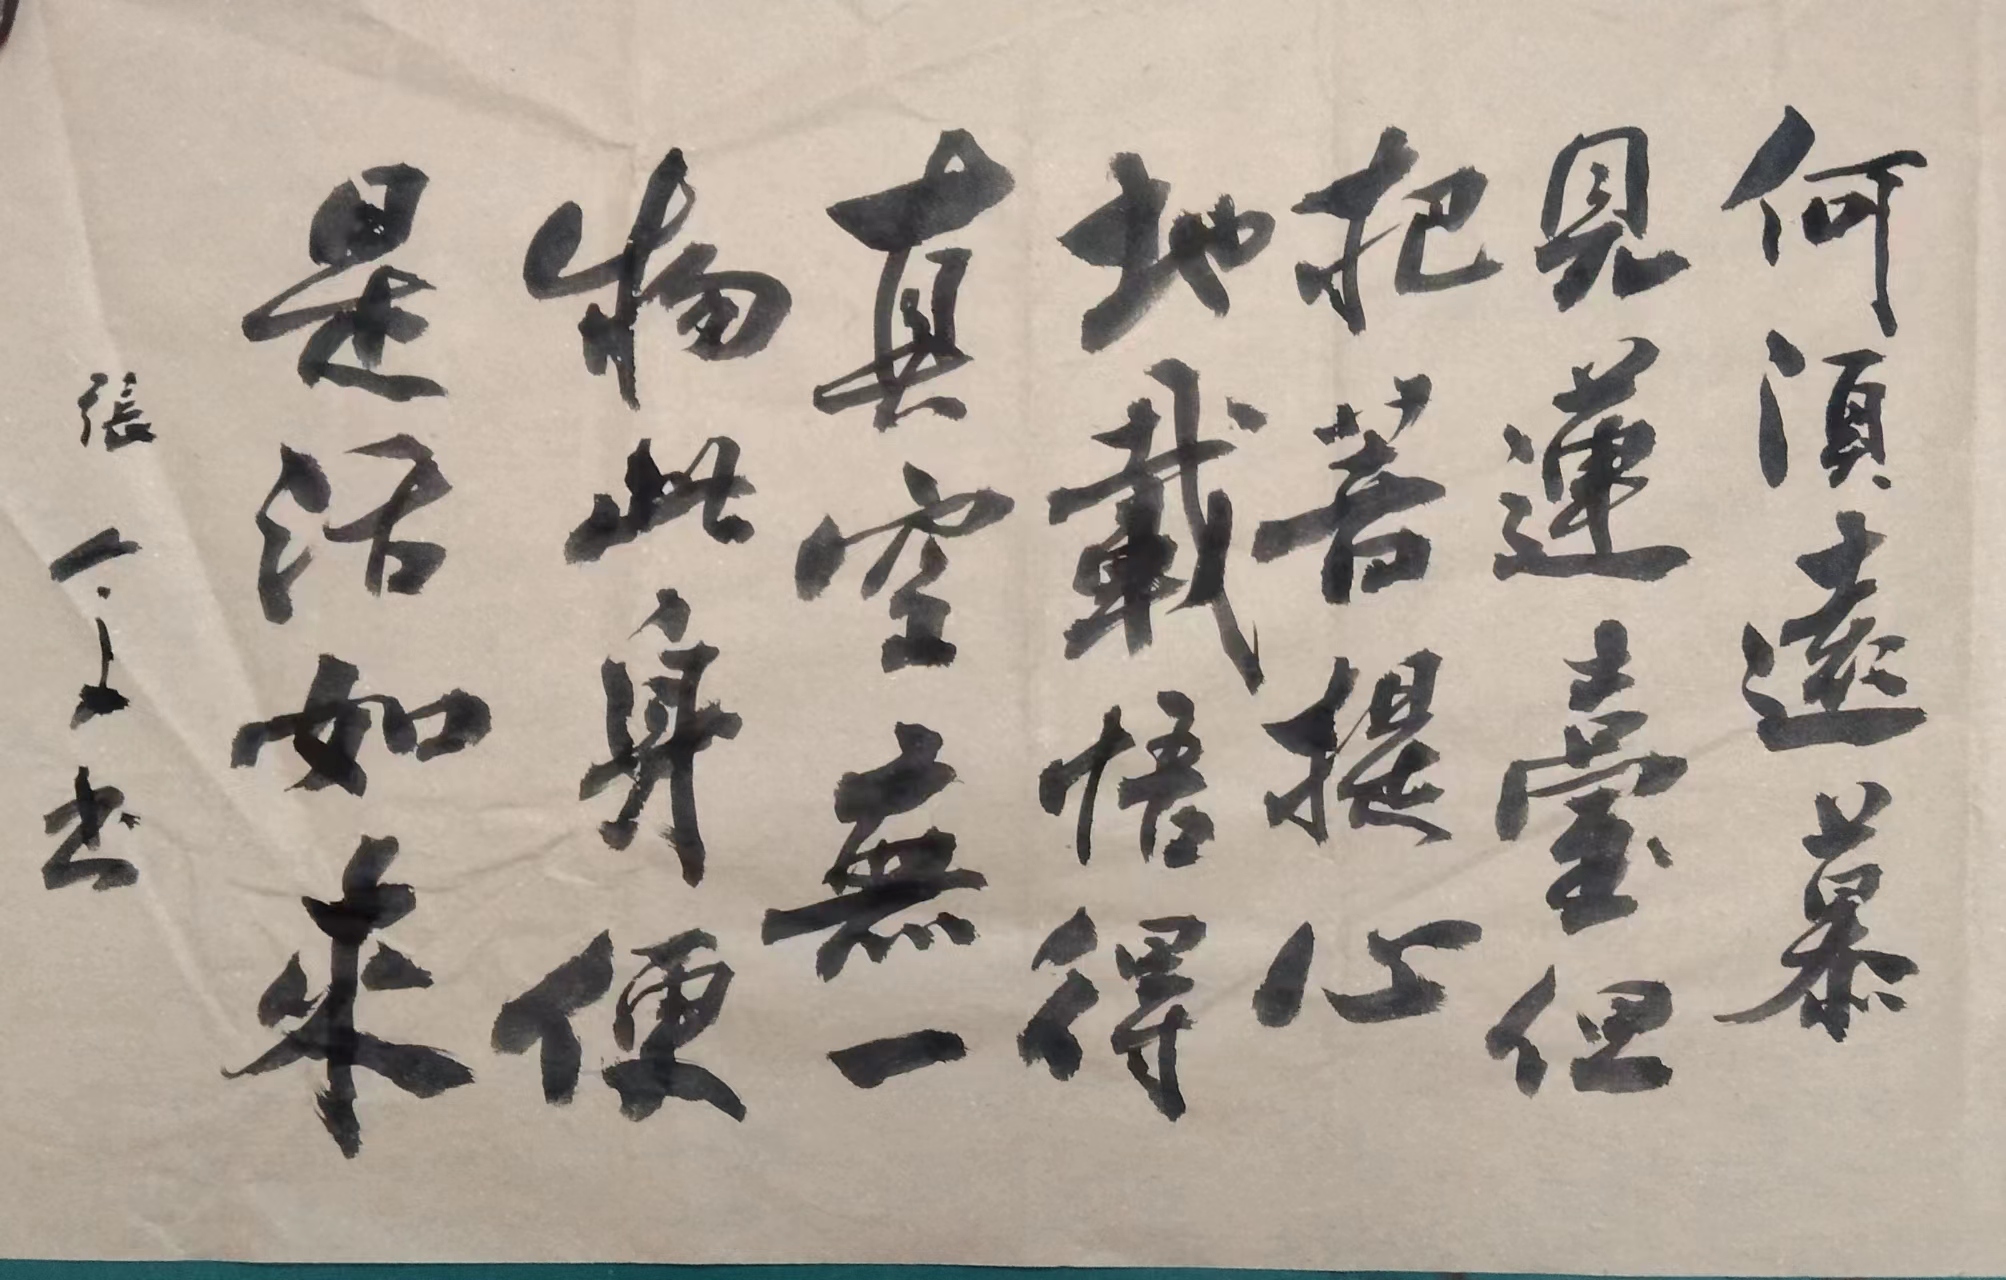 何須遠慕
見蓮臺但
把菩提心
地載悟得
真空無一
物此身便
是活如來
張
書